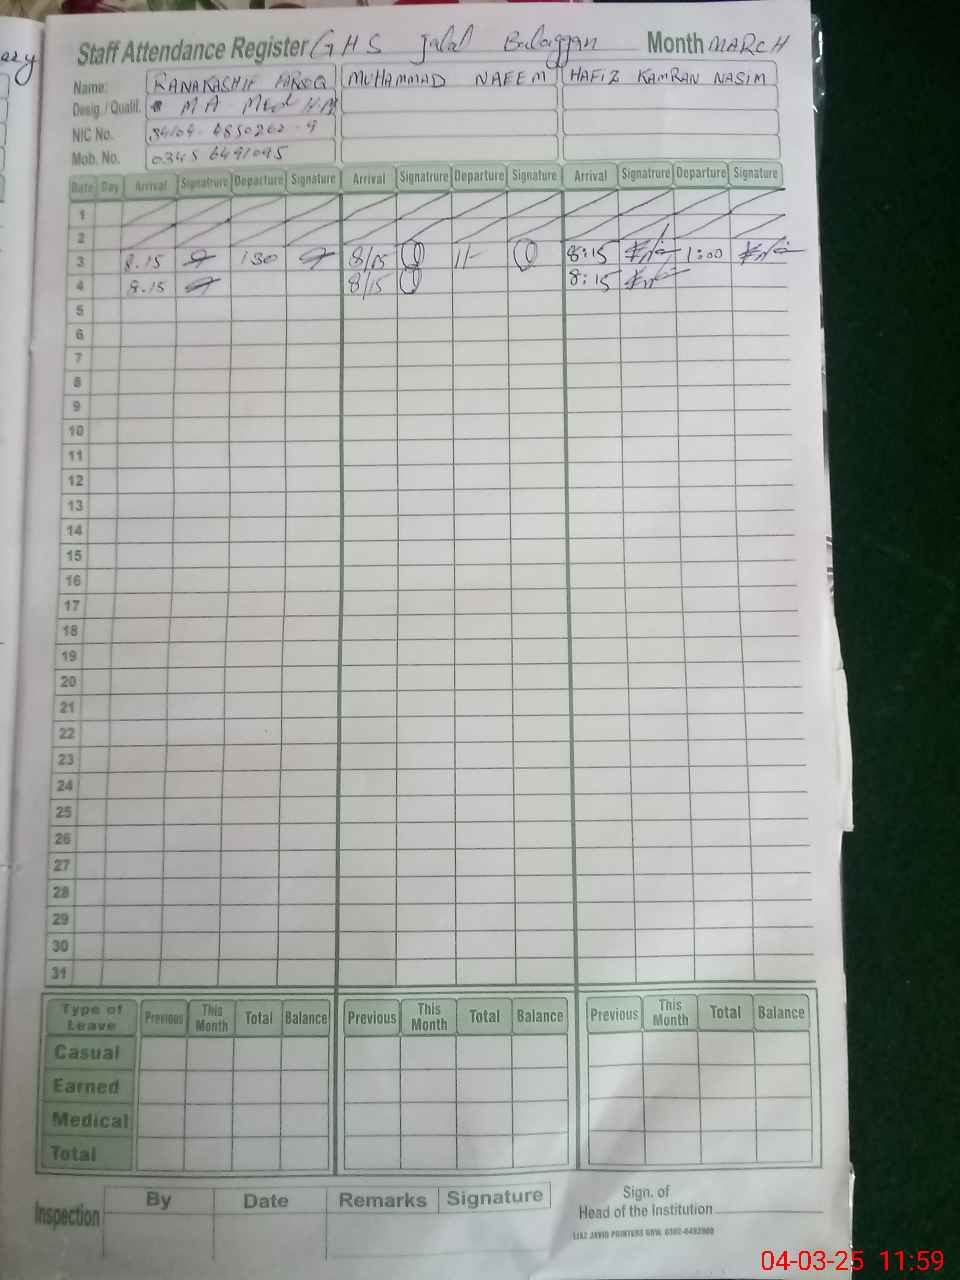 Staff Attendance Register GHS Jalal Balaggan Month MARCH
Name: RANA KASHIF FAROOQ MUHAMMAD NAEEM HAFIZ KAMRAN NASIM
Desig. / Qualif. MA
NIC No.
Mob. No. 0345 6491095
Date Day Arrival Signatrure Departure Signature Arrival Signatrure Departure Signature Arrival Signatrure Departure Signature
1
2
3 8.15 130 8/15 1/- 8:15 1:00
4 8.15 8/15 8:15
5
6
7
8
9
10
11
12
13
14
15
16
17
18
19
20
21
22
23
24
25
26
27
28
29
30
31
Type of Leave Previous This Month Total Balance Previous This Month Total Balance Previous This Month Total Balance
Casual
Earned
Medical
Total
Inspection By Date Remarks Signature
Sign. of
Head of the Institution
04-03-25 11:59